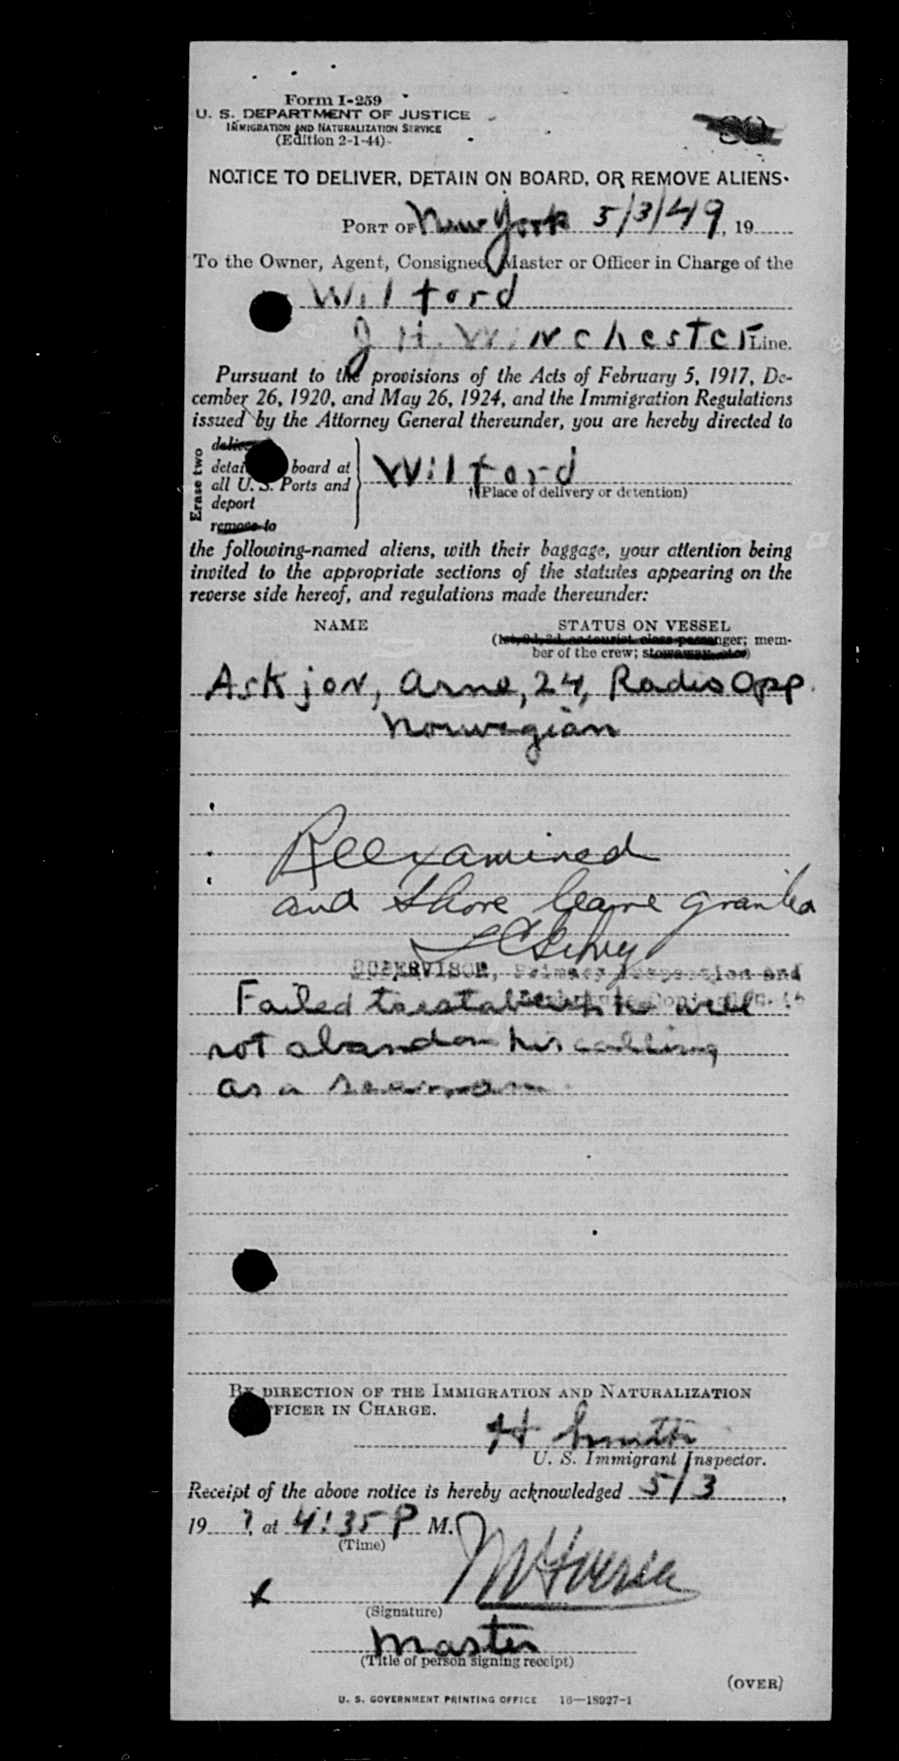 Form I-259
U. S. DEPARTMENT OF JUSTICE
IMMIGRATION AND NATURALIZATION SERVICE
(Edition 2-1-44)
NOTICE TO DELIVER, DETAIN ON BOARD, OR REMOVE ALIENS
PORT OF New York 5/3/49, 19
To the Owner, Agent, Consignee, Master or Officer in Charge of the
Wilford
J. H. Winchester Line.
Pursuant to the provisions of the Acts of February 5, 1917, De-
cember 26, 1920, and May 26, 1924, and the Immigration Regulations
issued by the Attorney General thereunder, you are hereby directed to
Erase two
deliver
board at
all U. S. Ports and
deport
remove to
Wilford
(Place of delivery or detention)
the following-named aliens, with their baggage, your attention being
invited to the appropriate sections of the statutes appearing on the
reverse side hereof, and regulations made thereunder:
NAME STATUS ON VESSEL
(1st, 2d, 3d, or tourist class passenger; mem-
ber of the crew; stowaway, etc.)
Askjor, Arne, 24, Radio Opp.
Norwegian
Reexamined
and Shore leave granted
SUPERVISOR, Primary Inspection and
Failed to establish he will
not abandon his calling
as a seaman
BY DIRECTION OF THE IMMIGRATION AND NATURALIZATION
OFFICER IN CHARGE.
H Smith
U. S. Immigrant Inspector.
Receipt of the above notice is hereby acknowledged 5/3,
19, at 4:35 P M.
(Time)
x
(Signature)
Master
(Title of person signing receipt)
(OVER)
U. S. GOVERNMENT PRINTING OFFICE 16—18927-1